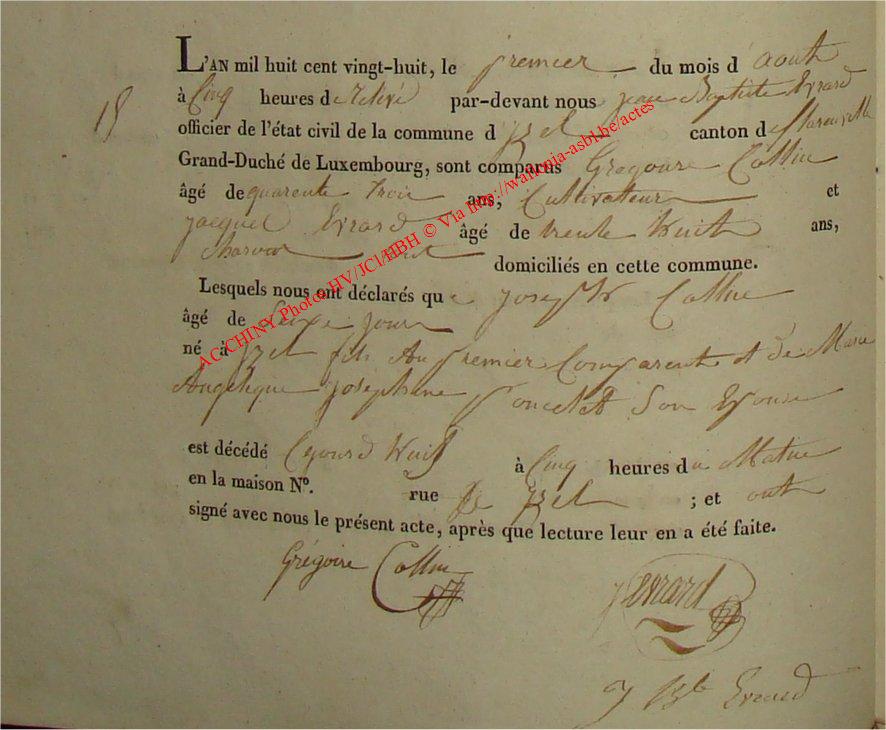 L'AN mil huit cent vingt-huit, le premier du mois d aout
15
à Cinq heures de relevé par-devant nous jean Baptiste Evrard
officier de l'état civil de la commune d izel canton de florenville
Grand-Duché de Luxembourg, sont comparus Gregoire Collin
âgé de quarente trois ans, Cultivateur et
jacques Evrard âgé de trente huit ans,
domiciliés en cette commune.
Lesquels nous ont déclarés que joseph Collin
âgé de seixe jour
né à izel fils du premier Comparent et de Marie
Angelique josephine poncelet son Epouse
est décédé cejourd huit à Cinq heures du Matin
en la maison N°. rue de izel ; et ont
signé avec nous le présent acte, après que lecture leur en a été faite.
Grégoire Collin
J evrard
J Bte Evrard
AC CHINY Photos HV/JCl/HBH © Via http://wallonia-asbl.be/actes